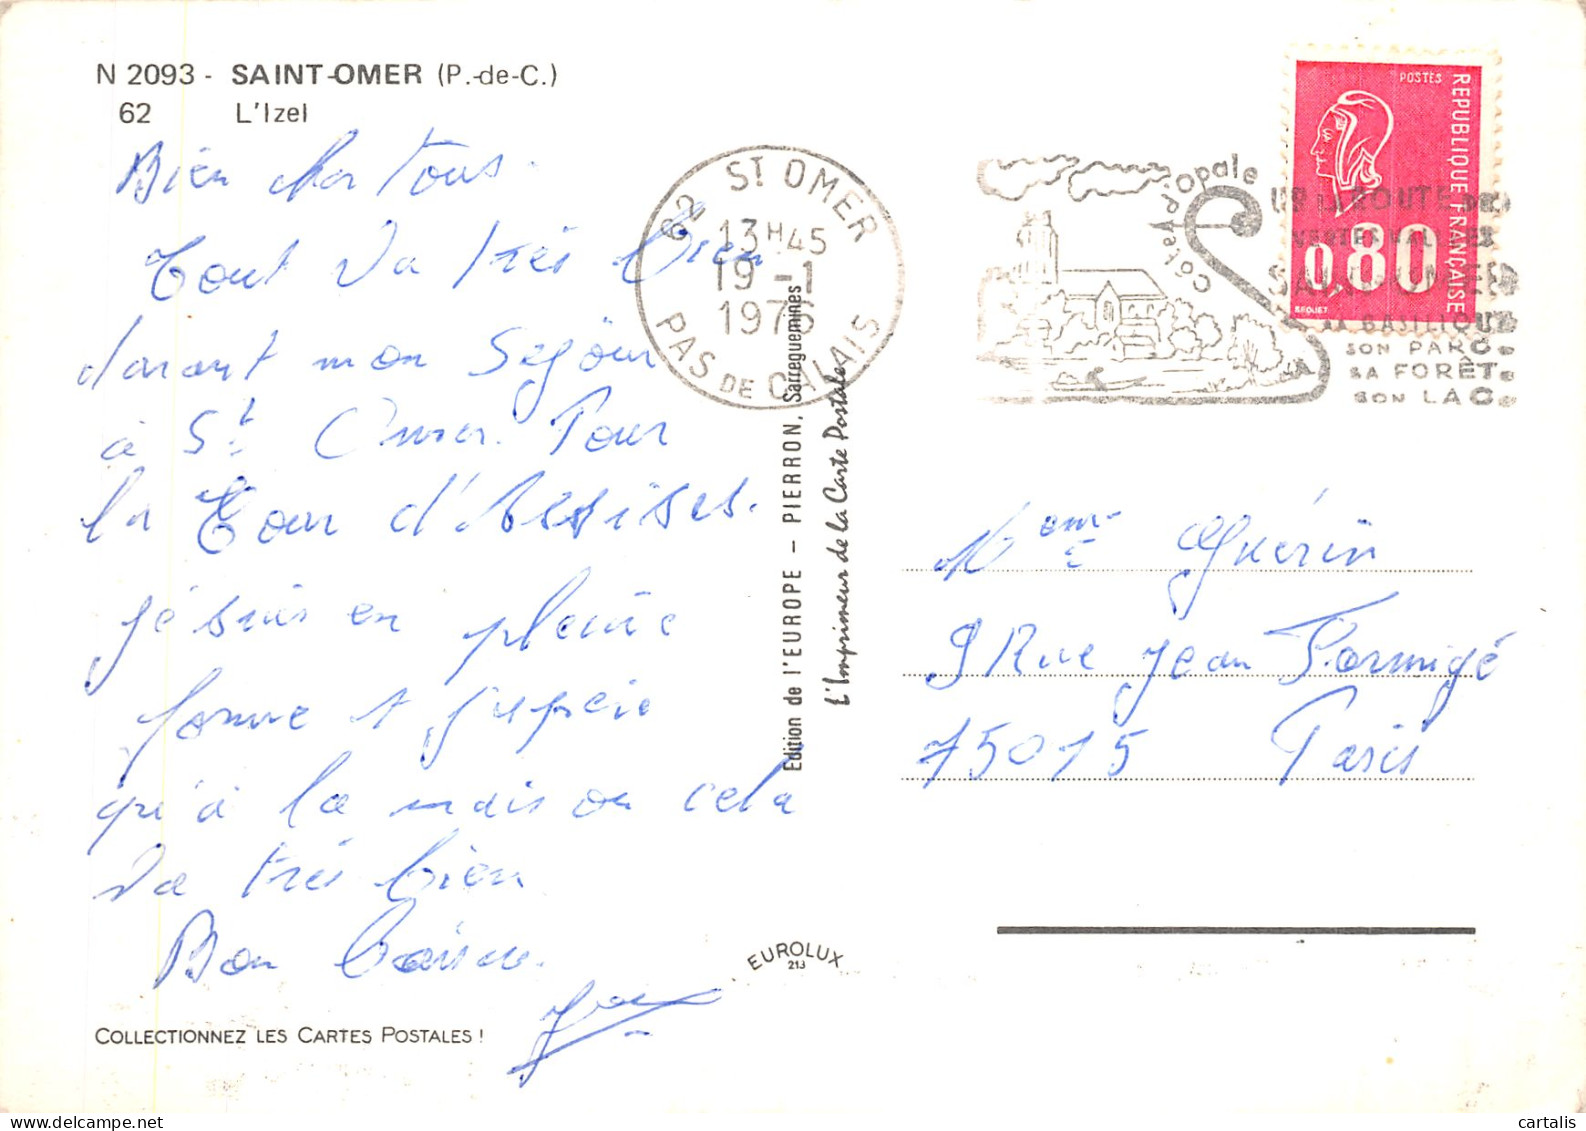 N 2093 - SAINT-OMER (P.-de-C.)
62 L'Izel
Bien cher tous.
Tout va très bien
durant mon Séjour
à St Omer. Pour
la Cour d'Assises.
Je suis en pleine
forme et j'espère
qu'à la maison cela
va très bien
Bon baiser.
COLLECTIONNEZ LES CARTES POSTALES !
62 ST OMER
13H45
19 -1
1976
PAS DE CALAIS
Edition de l'EUROPE – PIERRON, Sarreguemines
L'Imprimeur de la Carte Postale
EUROLUX
213
Côte d'Opale
SUR LA ROUTE DES
VERTES VALLÉES
SAINT-OMER
SA BASILIQUE
SON PARC
SA FORÊT
SON LAC
POSTES
REPUBLIQUE FRANÇAISE
0,80
BEQUET
Mme Guérin
9 Rue Jean Formigé
75015 Paris
cartalis